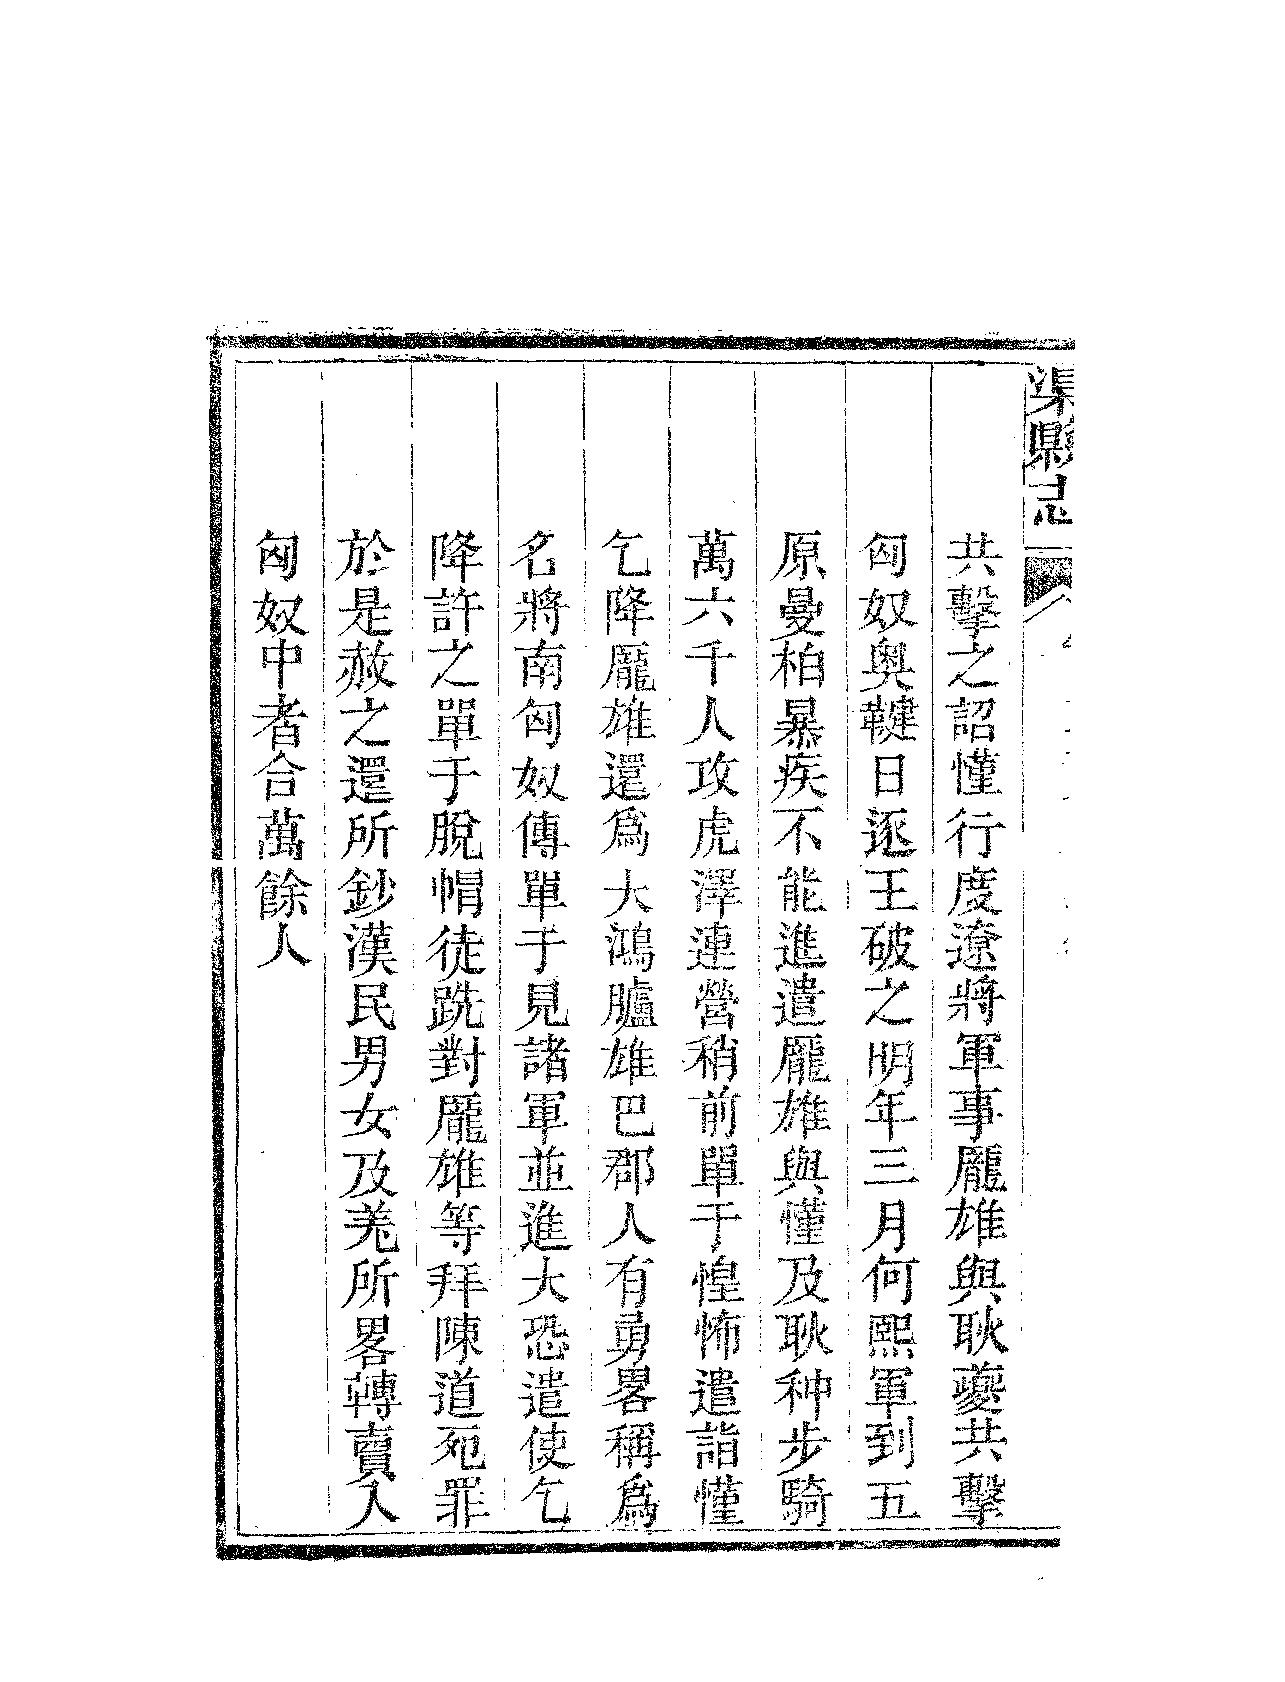 渠縣志
共擊之詔慬行度遼將軍事龐雄與耿夔共擊
匈奴奧鞬日逐王破之明年三月何熙軍到五
原曼柏暴疾不能進遣龐雄與慬及耿种步騎
萬六千人攻虎澤連營稍前單于惶怖遣詣慬
乞降龐雄還爲大鴻臚雄巴郡人有勇畧稱爲
名將南匈奴傳單于見諸軍並進大恐遣使乞
降許之單于脫帽徒跣對龐雄等拜陳道死罪
於是赦之還所鈔漢民男女及羗所畧轉賣入
匈奴中者合萬餘人